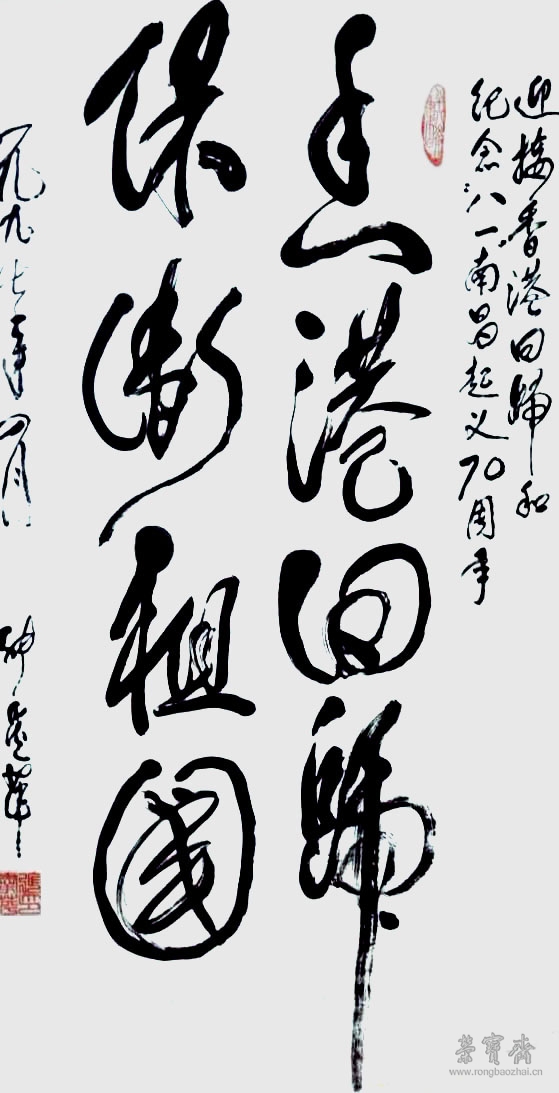 迎接香港回歸和
纪念"八一"南昌起义70周年
香港回歸
保衛祖國
一九九七年四月
榮寶齋
www.rongbaozhai.cn